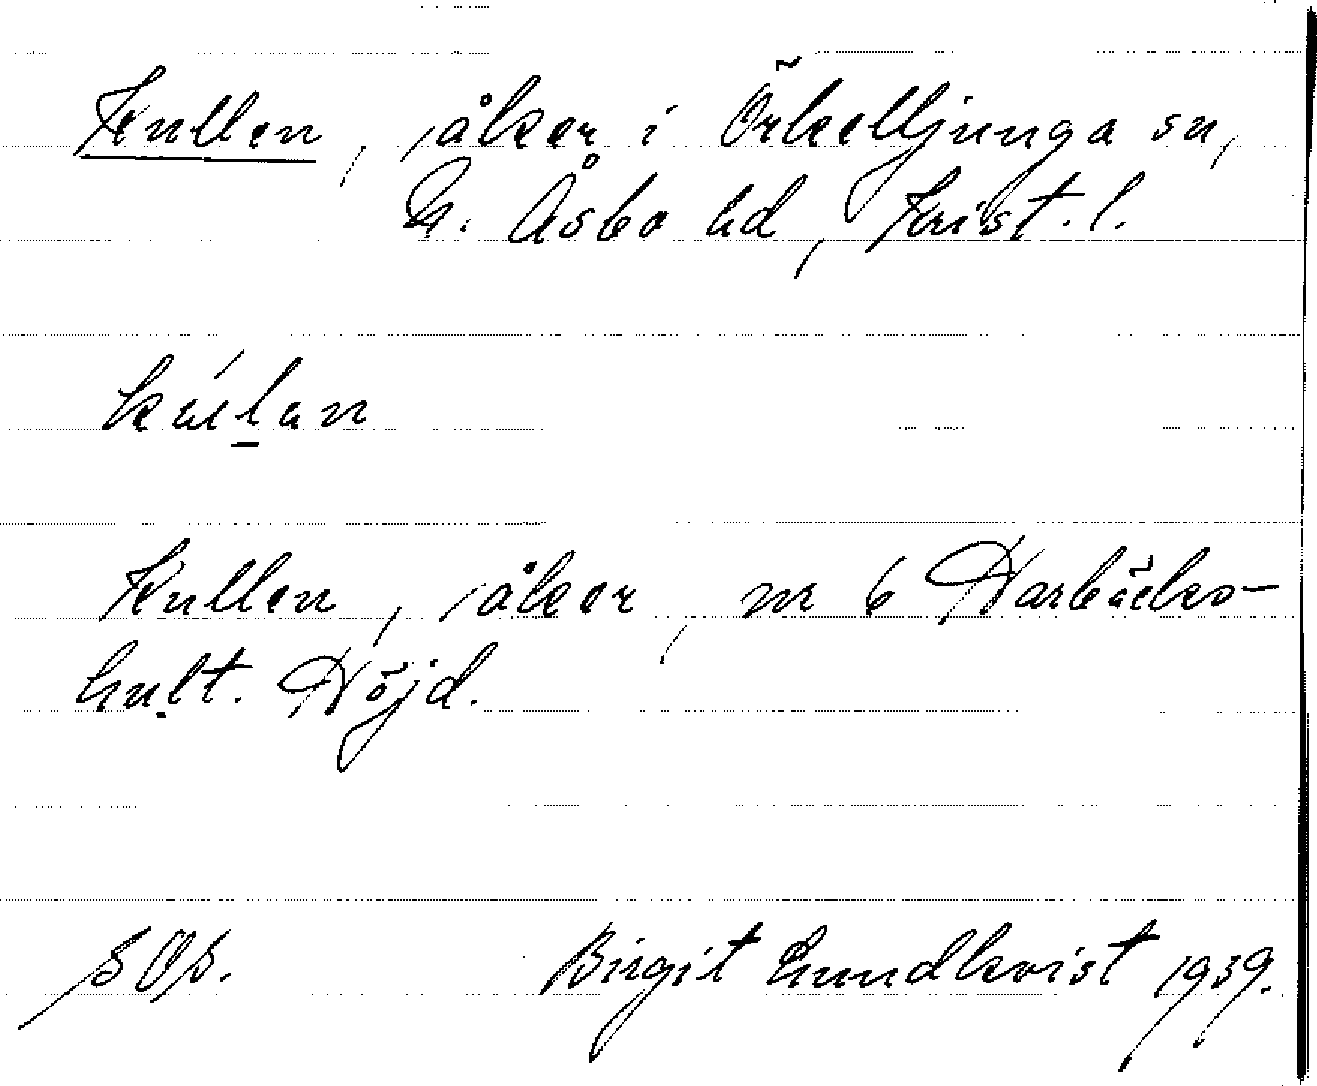 Kullen, åker i Örkelljunga sn,
N. Åsbo hd, Krist. l.
Kullen, åker, nr 6 Harbäcks-
hult. Höjd.
SOS. Birgit Lundkvist 1939.